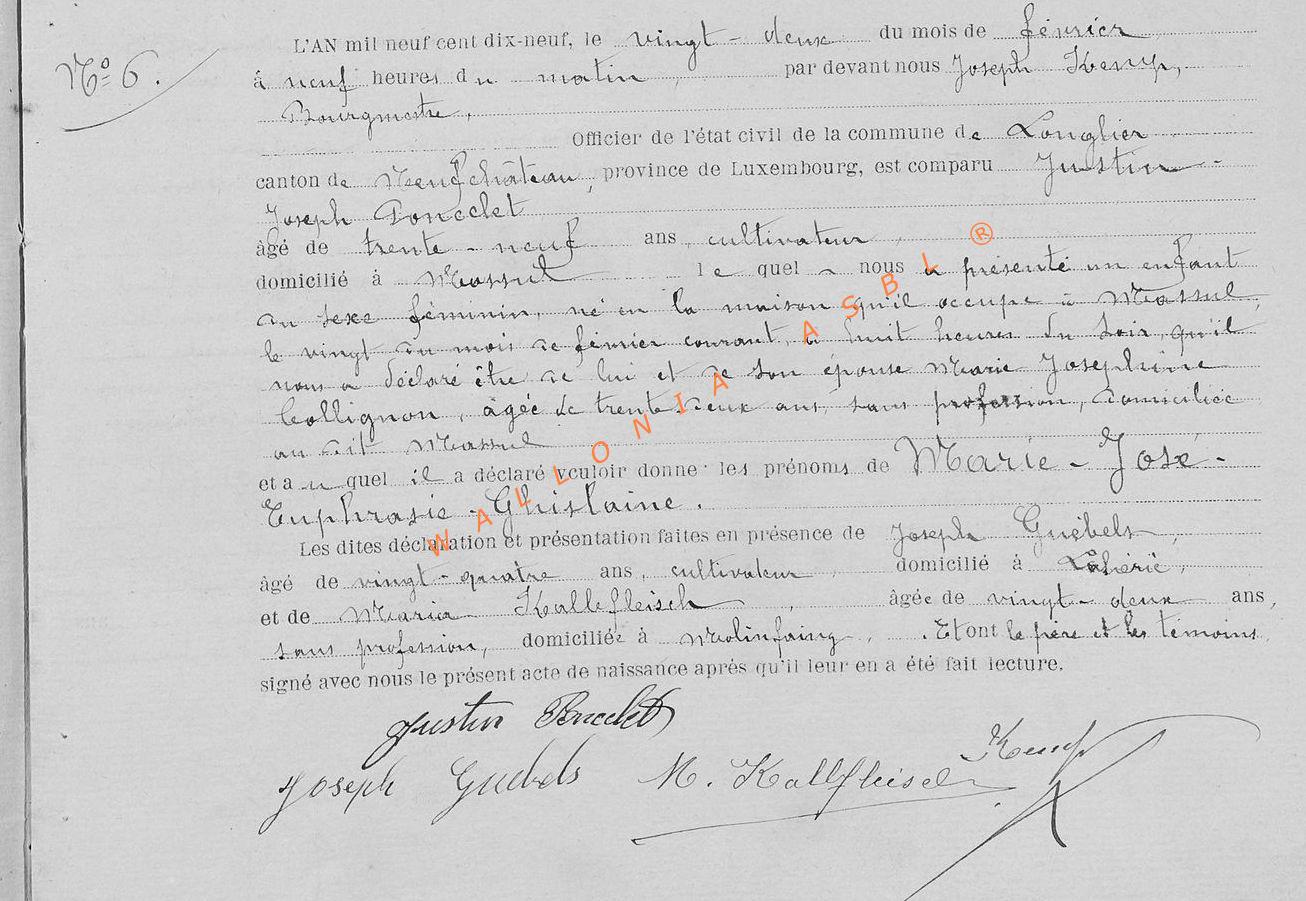 N° 6.
L'AN mil neuf cent dix-neuf, le vingt-deux du mois de février
à neuf heures du matin, par devant nous Joseph Kemp,
Bourgmestre,
Officier de l'état civil de la commune de Longlier
canton de Neufchâteau, province de Luxembourg, est comparu Justin-
Joseph Poncelet
âgé de trente-neuf ans, cultivateur,
domicilié à Massul lequel nous a présenté un enfant
du sexe féminin, né en la maison qu'il occupe à Massul,
le vingt du mois de février courant, à huit heures du soir, qu'il
nous a déclaré être de lui et de son épouse Marie Joséphine
Collignon, âgée de trente-deux ans, sans profession, domiciliée
au dit Massul
et auquel il a déclaré vouloir donner les prénoms de Marie-José-
Euphrasie-Ghislaine.
Les dites déclaration et présentation faites en présence de Joseph Guébels,
âgé de vingt-quatre ans, cultivateur, domicilié à Lahérie,
et de Maria Kallefleisch, âgée de vingt-deux ans,
sans profession, domiciliée à Molinfaing, . Et ont le père et les témoins
signé avec nous le présent acte de naissance après qu'il leur en a été fait lecture.
Justin Poncelet
Kemp
Joseph Guebels M. Kallfleisch
WALLONIA ASBL ®